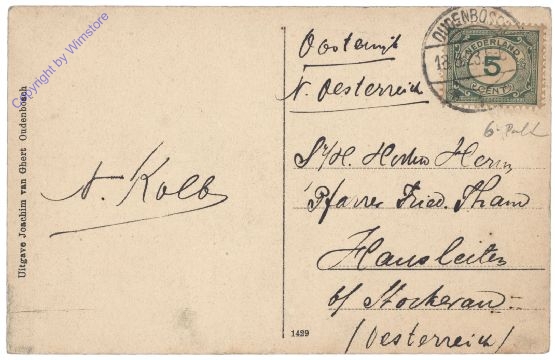 Copyright by Wimstore
Uitgave Joachim van Ghert Oudenbosch
A. Kolb
Oostenrijk
N. Oesterreich
OUDENBOSCH
NEDERLAND
5
CENT
S/H. Herrn Herrn
Pfarrer Fried. Tham
Hausleiten
b/ Stockerau
(Oesterreich)
1429